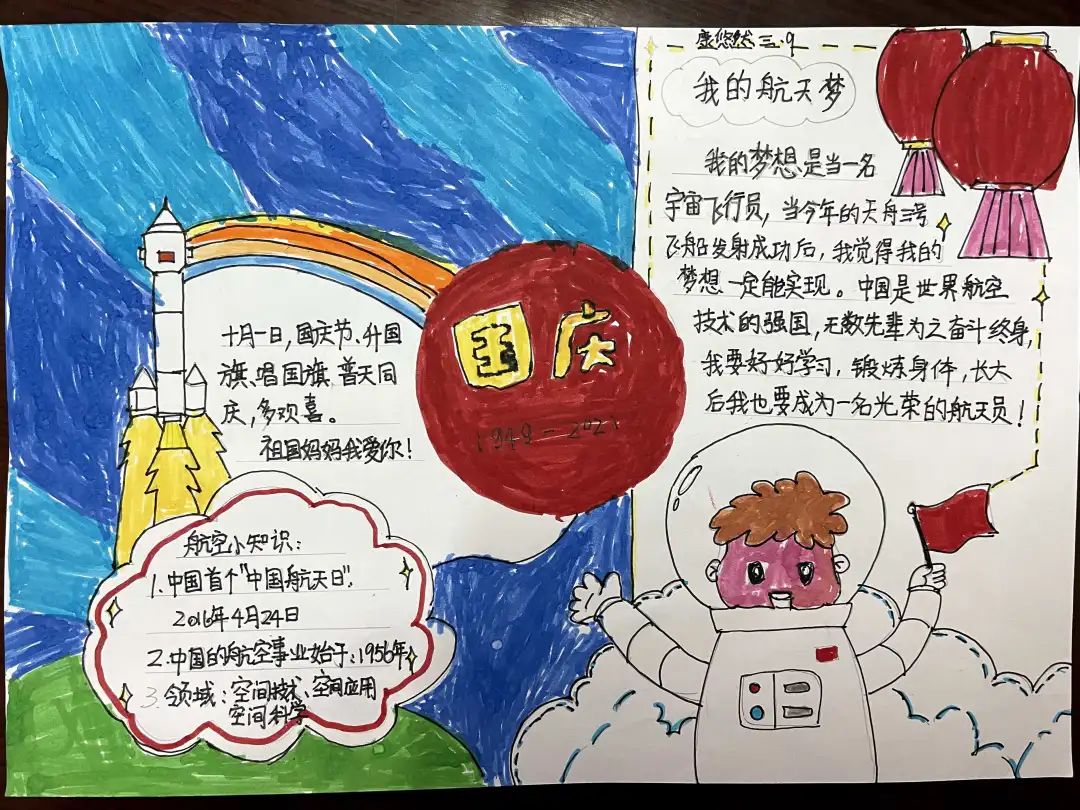 康悠然 三.9
我的航天梦
我的梦想是当一名
宇宙飞行员，当今年的天舟三号
飞船发射成功后，我觉得我的
梦想一定能实现。中国是世界航空
技术的强国，无数先辈为之奋斗终身，
我要好好学习，锻炼身体，长大
后我也要成为一名光荣的航天员！
国庆
1949-2021
十月一日，国庆节、升国
旗、唱国旗、普天同
庆，多欢喜。
祖国妈妈我爱你！
航空小知识：
1.中国首个"中国航天日"，
2016年4月24日
2.中国的航空事业始于：1956年
3.领域：空间技术、空间应用
空间科学